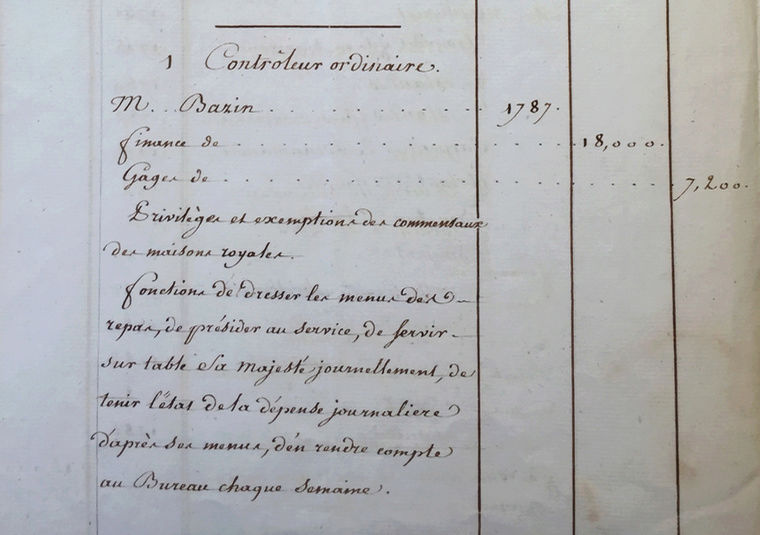 1 Contrôleur ordinaire.
M. Bazin . . . . . . . . . . . 1787.
finance de . . . . . . . . . . . . 18,000.
Gages de . . . . . . . . . . . . . . . 7,200.
Privilèges et exemptions des commensaux
des maisons royales.
fonctions de dresser les menus des
repas, de présider au service, de servir
sur table Sa majesté journellement, de
tenir l'état de la dépense journaliere
d'après ses menus, d'en rendre compte
au Bureau chaque semaine.